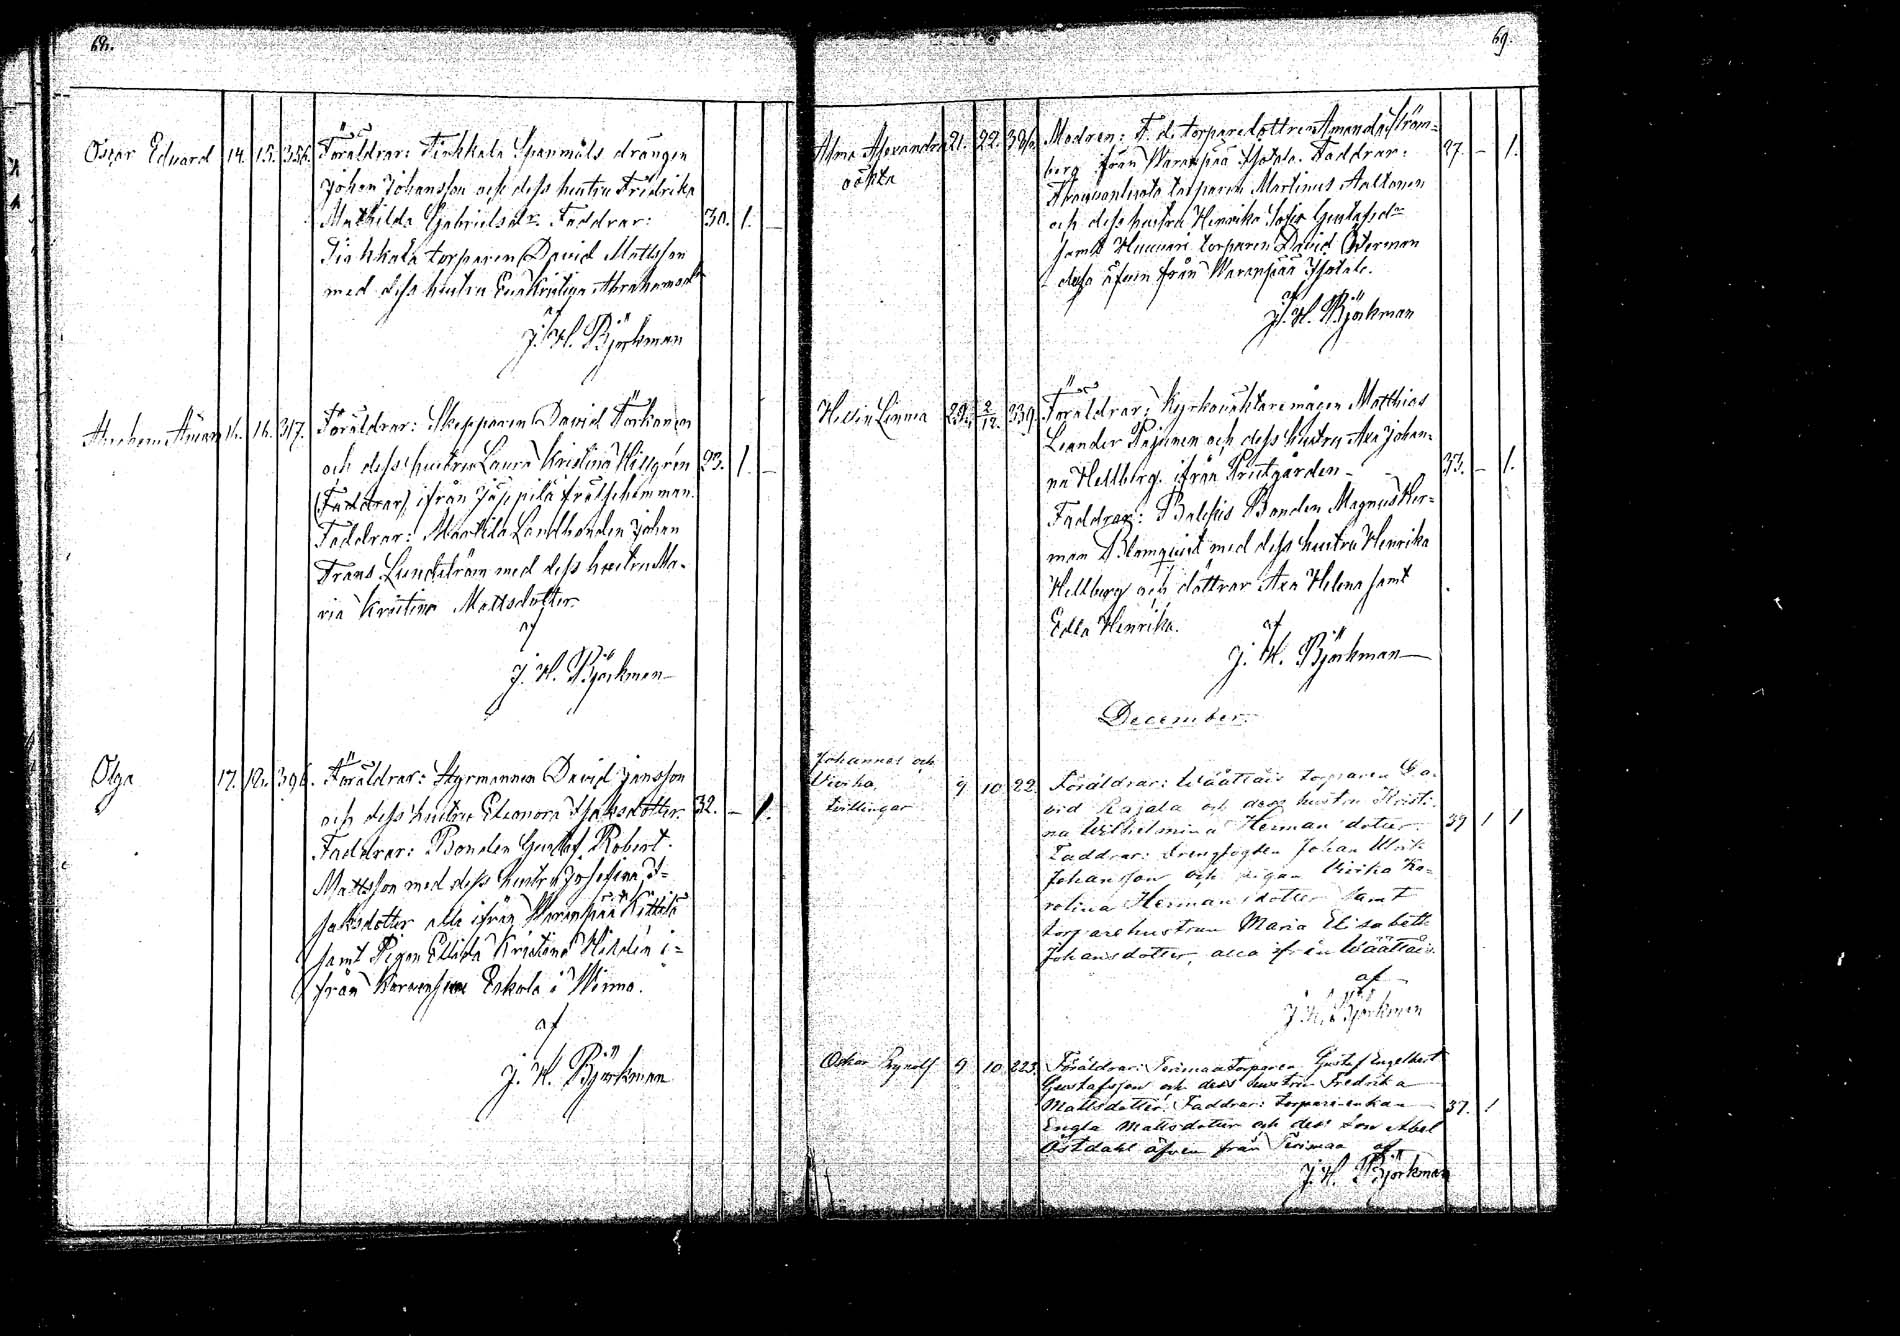 68.
Oscar Eduard 14. 15. 356. Föräldrar: Tinkkala Spanmåls drängen
Johan Johansson och dess hustru Fredrika
Mathilda Gabrielsdr. Faddrar: 30. 1. –
Tinkkala torparen David Mattsson
med dess hustru Eva Kristina Abrahamsdr
af
J. H. Björkman
16. 16. 317. Föräldrar: Skepparen David
och dess hustru Laura Kristina Hillgrén 23. 1. –
(Faddrar) ifrån Jäppilä frälsehemman.
Faddrar: Mattila Landbonden Johan
Frans Lundström med dess hustru Ma-
ria Kristina Mattsdotter
af
J. H. Björkman
Olga 17. 18. 396. Föräldrar: Styrmannen David Jansson
och dess hustru Eleonora Isaksdotter. 32. – 1.
Faddrar: Bonden Gustaf Robert
Mattsson med dess hustru Josefina I-
saksdotter alla ifrån Waranpää Kittilä
samt Pigan Kristina i-
från Eskola i Winno.
af
J. H. Björkman
69.
Alma Alexandra 21. 22. 386. Modren: F. d. torparedottren Amanda Ström-
oäkta berg från Waranpää Isotalo. Faddrar: 27. – 1.
torparen Martinus Aaltonen
och dess hustru Henrika Sofia Gustafsdr
samt torparen David Österman
dessa äfven från Waranpää Isotalo.
af
J. H. Björkman
Helin Linnea 29. 2/12. 339. Föräldrar: Kyrkovaktaremågen Matthias
Leander Pajunen och dess hustru Axa Johan-
na Hellberg ifrån Prestgården – 33. – 1.
Faddrar: Bonden Magnus Her-
man Blomquist med dess hustru Henrika
Hellberg och döttrar Axa Helena samt
Edla Henrika.
af
J. H. Björkman
December.
Johannes och
Vivika, 9 10 22. Föräldrar: Wäättäis torparen Da-
tvillingar vid Rajala och dess hustru Kristi-
na Wilhelmina Hermansdotter. 39 1 1
Faddrar: Drengfogden Johan Ulrik
Johansson och pigan Vivika Ka-
rolina Hermansdotter samt
torparehustrun Maria Elisabeth
Johansdotter, alla ifrån Wäättäis.
af
J. H. Björkman
Oskar Brynolf 9 10 223. Föräldrar: Perimaa torparen Gustaf Engelbert
Gustafsson och dess hustru Fredrika
Mattsdotter. Faddrar: torpareenkan 37. 1
Engla Mattsdotter och dess son Abel
Östdahl äfven från Perimaa af
J. H. Björkman